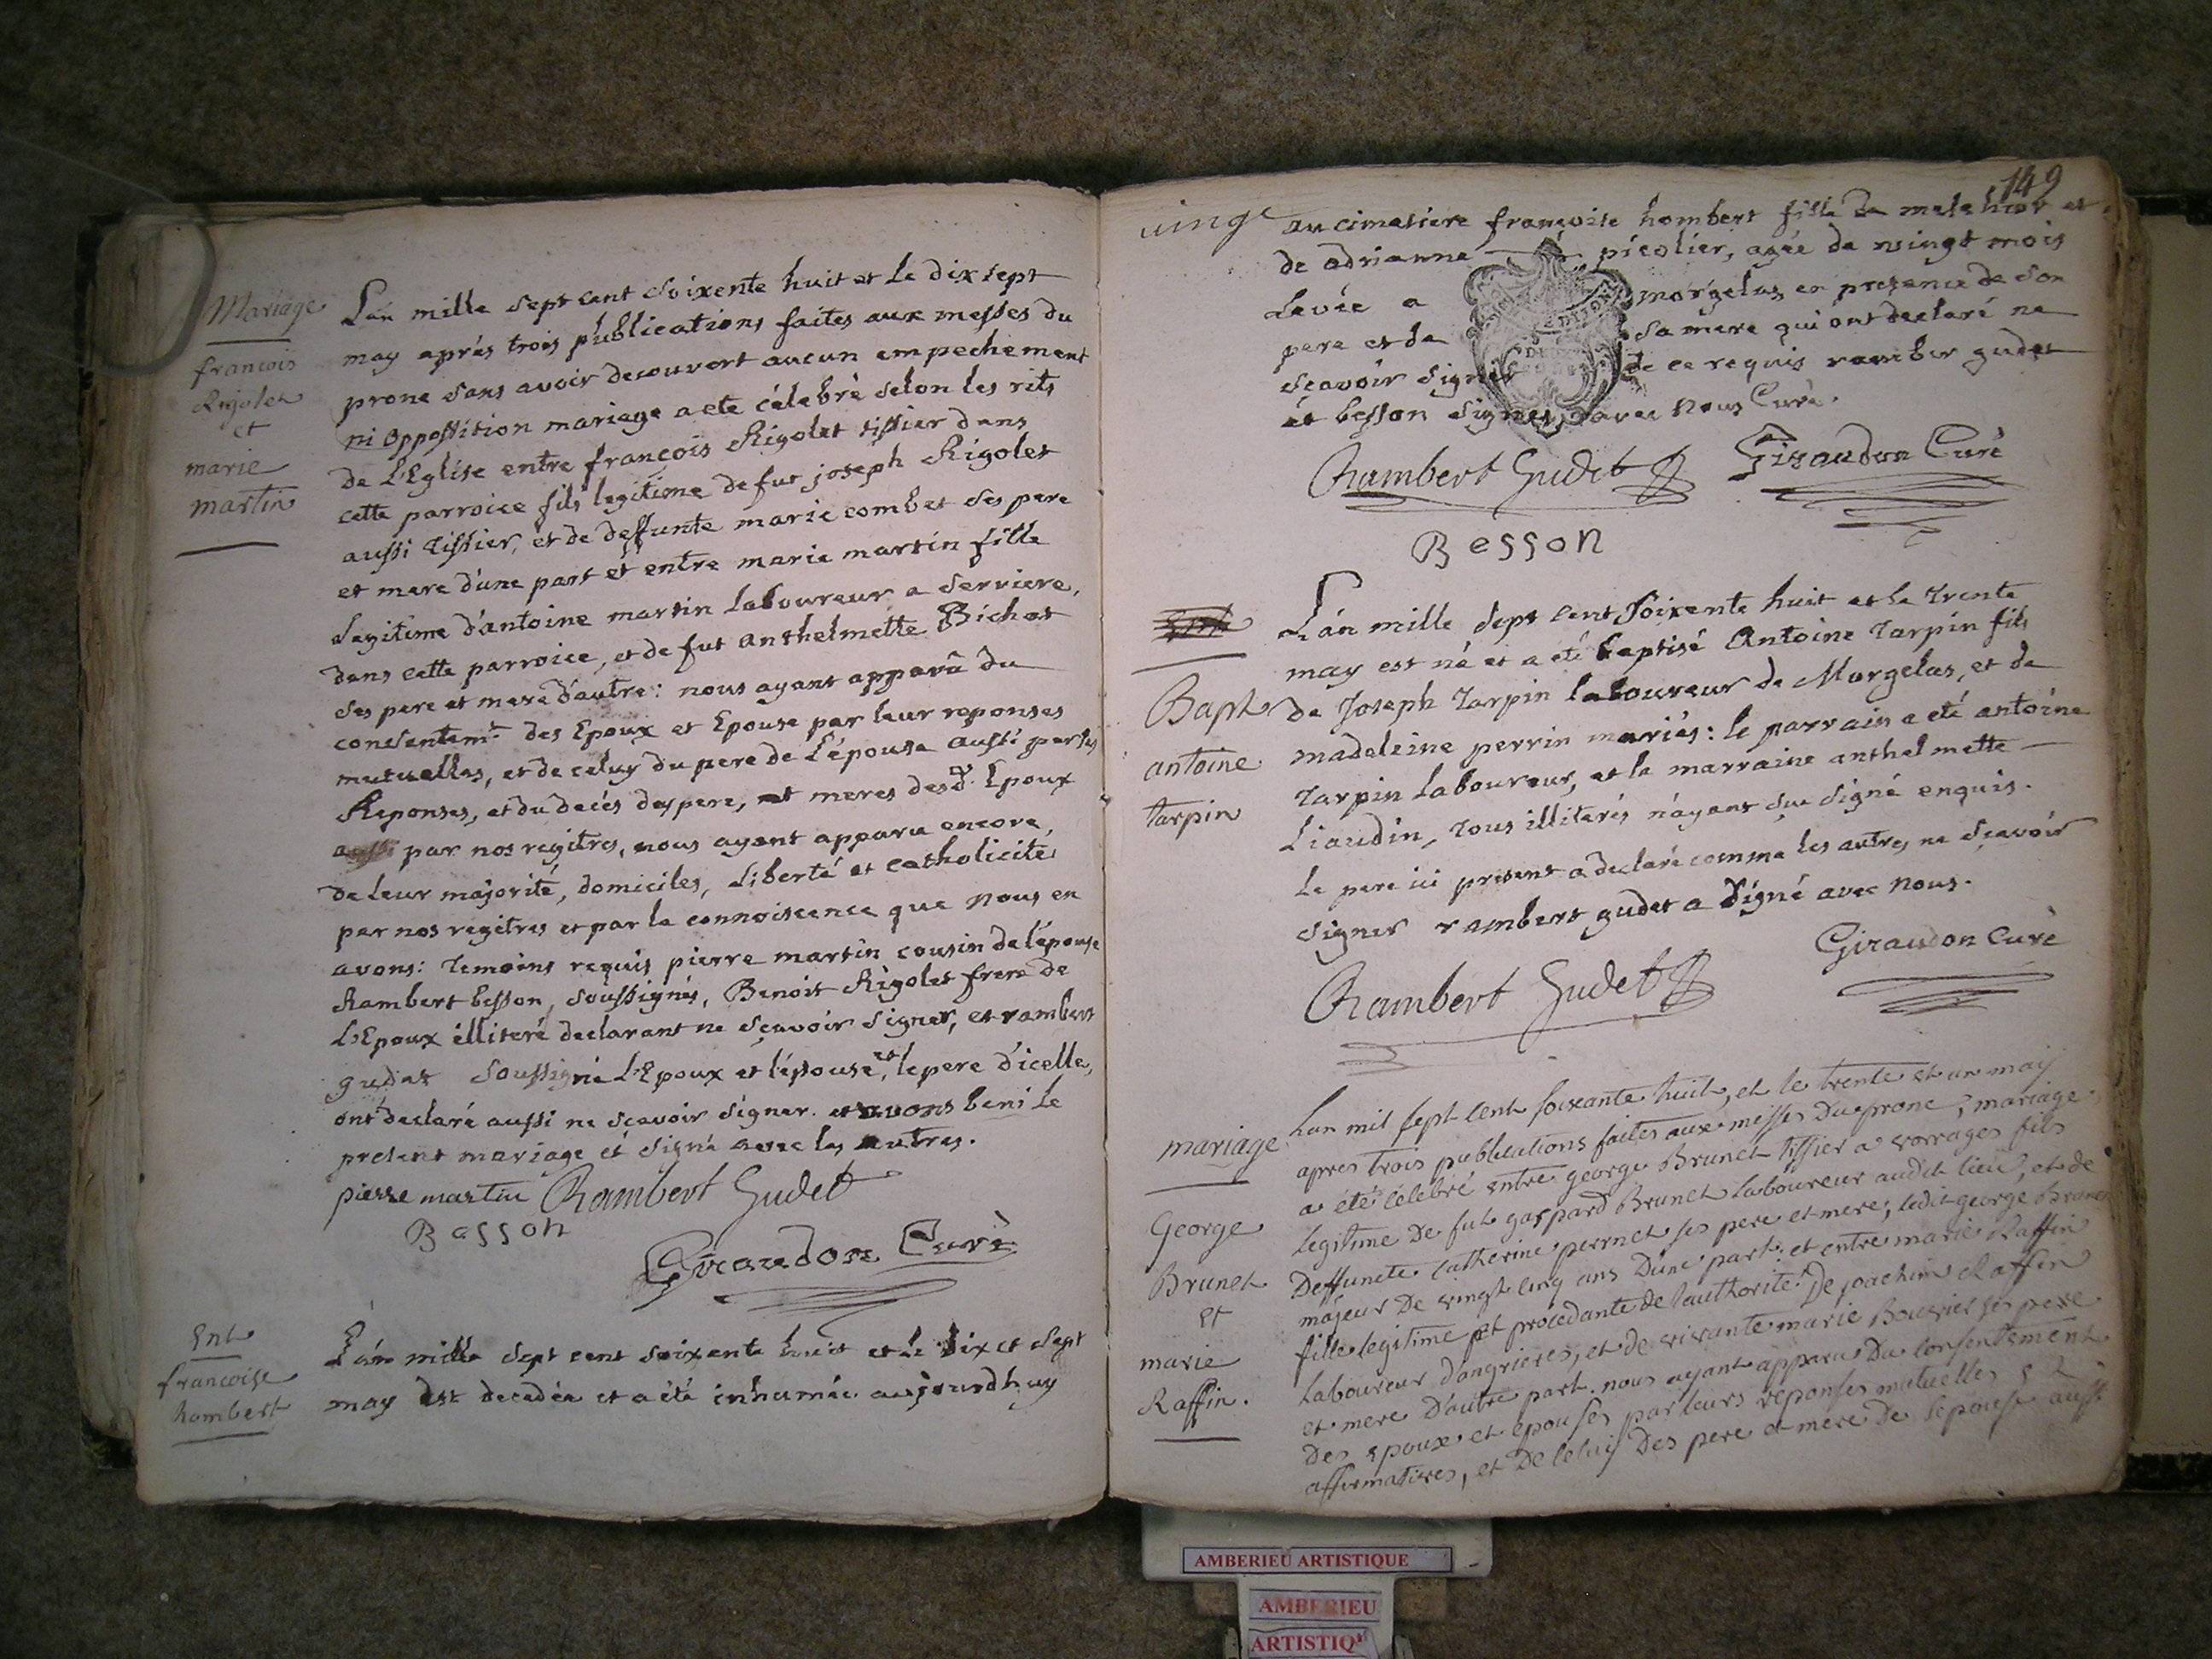 Mariage
françois
Rigolet
et
marie
martin
L'an mille sept cent soixente huit et le dix sept
may aprés trois publications faites aux messes du
prone sans avoir decouvert aucun empechement
ni oppossition mariage a ete célebré selon les rits
de L'Eglise entre françois Rigolet tissier dans
cette parroice fils legitime de fut joseph Rigolet
aussi tissier, et de deffunte marie combet ses pere
et mere d'une part et entre marie martin fille
Legitime d'antoine martin laboureur a serriere,
dans cette parroice, et de fut anthelmette Bichat
ses pere et mere d'autre: nous ayant apparû du
consentemt. des Epoux et Epouse par leur reponses
mutuelles, et de celuy du pere de L'épouse aussi par ses
Reponses, et du decés des pere, et meres desd. Epoux
aussi par nos regitres, nous ayant apparu encore
de leur majorité, domiciles, Liberté et catholicité
par nos regitres et par la connoissence que nous en
avons: temoins requis pierre martin cousin de l'épouse
Rambert besson, soussignés, Benoit Rigolet frere de
L'Epoux illiteré declarant ne sçavoir signer, et rambert
gudet soussigné L'Epoux et l'épouse, et le pere d'icelle,
ont declaré aussi ne scavoir signer. et avons beni le
present mariage et signé avec les autres.
pierre martin Rambert Gudet
Besson
Giraudon Curé
Ent
francoise
hombert
L'an mille sept cent soixente huit et le dix et sept
may est decedée et a été inhumée aujourdhuy
149
vingt
au cimetiere françoise hombert fille de melchior et
de adrianne picolier, agée de vingt mois
Levée a morgelas, en presence de son
pere et de sa mere qui ont declaré ne
scavoir signer de ce requis rambert gudet
et besson signes avec nous Curé.
Rambert Gudet Giraudon Curé
Besson
Bapt
antoine
tarpin
L'an mille sept cent soixente huit et le trente
may est né et a eté baptisé Antoine Tarpin fils
de Joseph Tarpin laboureur de Morgelas, et de
madeleine perrin mariés: le parrain a eté antoine
Tarpin laboureur, et la marraine anthelmette
Liaudin, tous illiterés n'ayant sçu signé enquis.
Le pere ici present a declaré comme les autres ne sçavoir
signer rambert gudet a signé avec nous.
Rambert Gudet Giraudon Curé
mariage
George
Brunet
et
marie
Raffin.
Lan mil sept cent soixante huit, et le trente et un may
apres trois publications faites aux messes du prone, mariage
a été célebré entre george Brunet tissier a vorrages fils
legitime de fut gaspard Brunet laboureur audit lieu, et de
Deffuncte catherine perrnet ses pere et mere; ledit george Brunet
majeur de vingt cinq ans d'une part: et entre marie Raffin
fille legitime et procedante de l'authorité de joachim Raffin
laboureur d'angrieres, et de vivante marie Bouvier ses pere
et mere d'autre part. nous ayant apparu du consentement
des epoux et epouses par leurs reponses mutuelles
affirmatives, et de celuy des pere et mere de l'epouse aussi
AMBERIEU ARTISTIQUE
AMBERIEU
ARTISTIQ